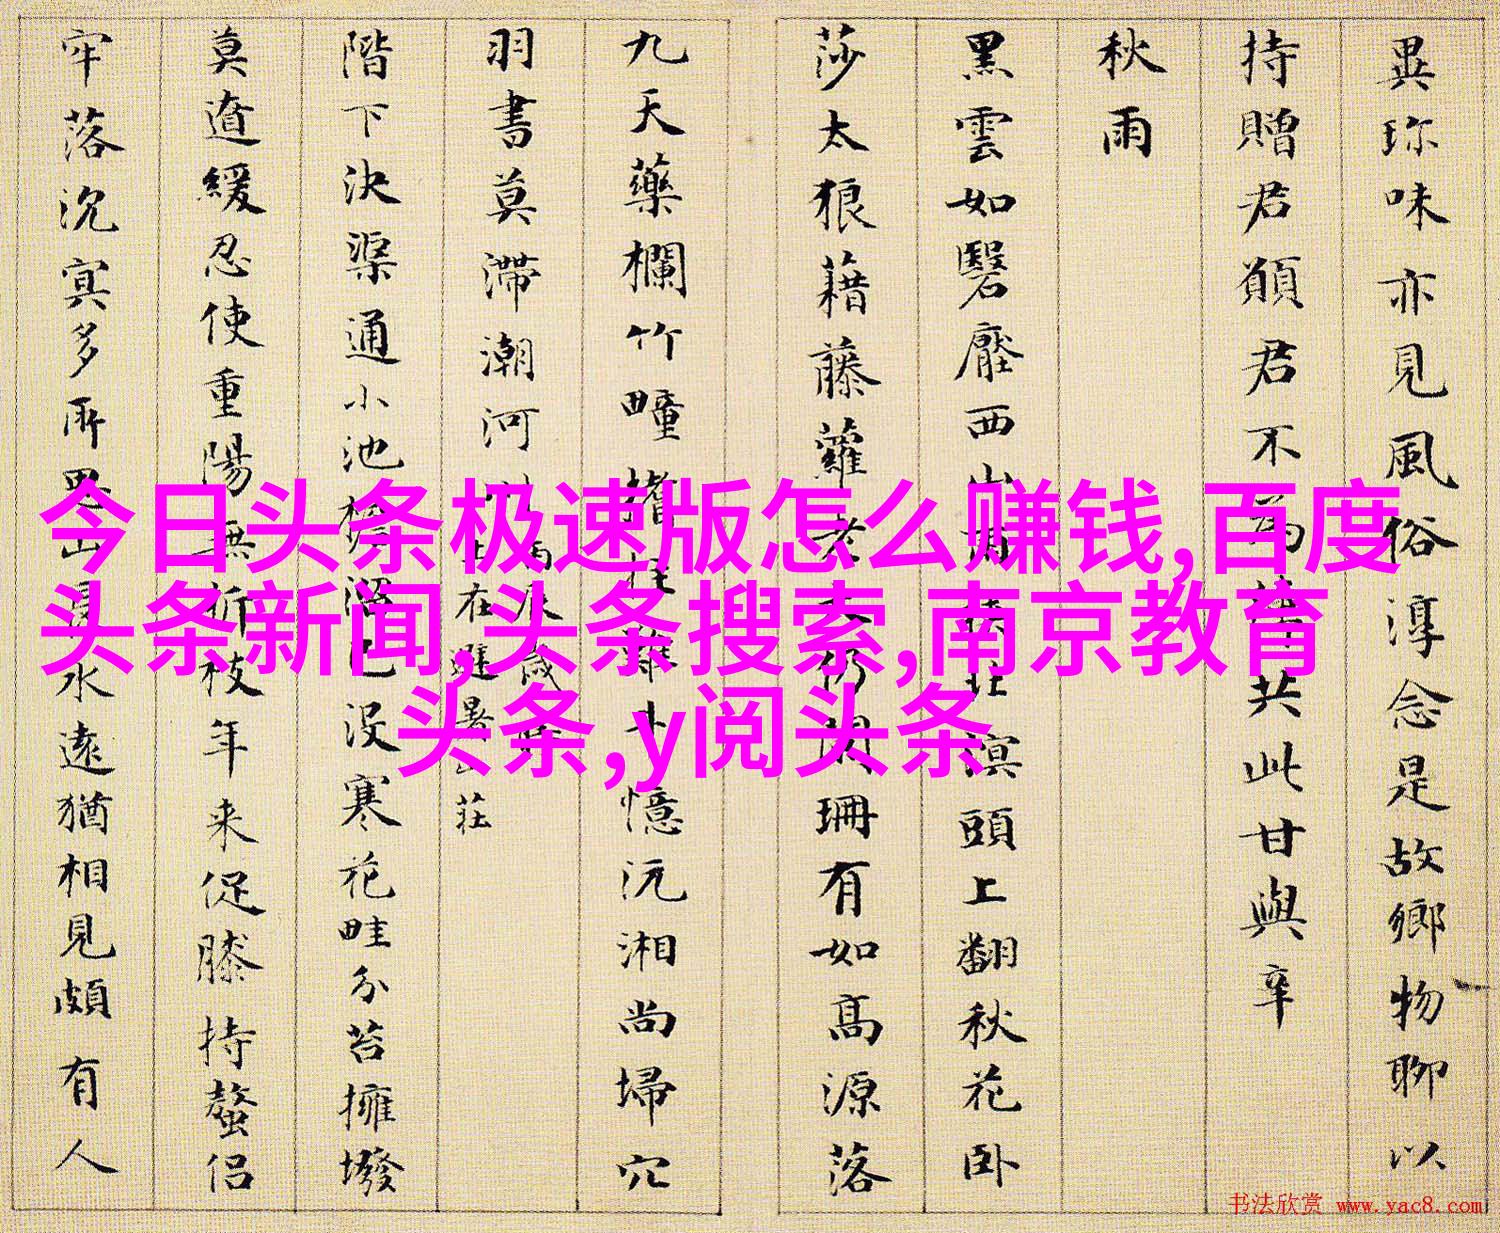 異珎味亦見風俗淳念是故鄉物聊以
持贈君願君不為共此甘與辛
秋雨
黑雲如毉壓西溟頭上翻秋花卧
莎太狼藉藤蘿老珊有如高源落
九天藥欄竹疃憶沅湘尚埽穴
羽書莫滯潮河
在避暑山莊
階下決渠通小池没寒花畦分苔擁撥
莫遣緩忍使重陽無折枝年来促膝持螯侣
牢落沉冥多所思山水遠猶相見頗有人
今日头条极速版怎么赚钱,百度
头条新闻,头条搜索,南京教育
头条,y阅头条
书法欣赏 www.yac8.com